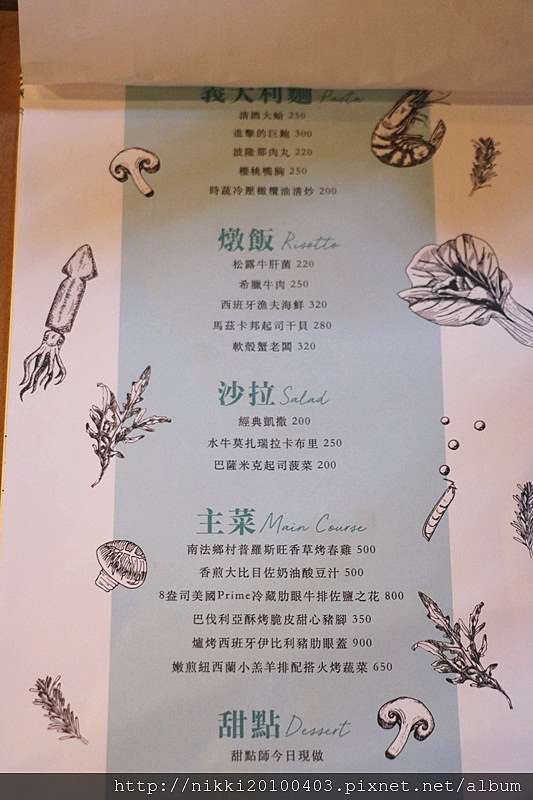 義大利麵 Pasta
清酒大蛤 250
進擊的巨鮑 300
波隆那肉丸 220
櫻桃鴨胸 250
時蔬冷壓橄欖油清炒 200
燉飯 Risotto
松露牛肝菌 220
希臘牛肉 250
西班牙漁夫海鮮 320
馬茲卡邦起司干貝 280
軟殼蟹老闆 320
沙拉 Salad
經典凱撒 200
水牛莫扎瑞拉卡布里 250
巴薩米克起司菠菜 200
主菜 Main Course
南法鄉村普羅斯旺香草烤春雞 500
香煎大比目佐奶油酸豆汁 500
8盎司美國Prime冷藏肋眼牛排佐鹽之花 800
巴伐利亞酥烤脆皮甜心豬腳 350
爐烤西班牙伊比利豬肋眼蓋 900
嫩煎紐西蘭小羔羊排配搭火烤蔬菜 650
甜點 Dessert
甜點師今日現做
http://nikki20100403.pixnet.net/album